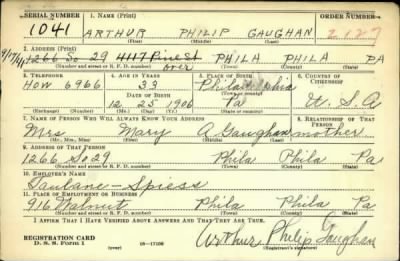 SERIAL NUMBER 1. NAME (Print) ORDER NUMBER
1041 ARTHUR PHILIP GAUGHAN 2127
(First) (Middle) (Last)
2. ADDRESS (Print)
1266 So 29 4117 Pine St PHILA PHILA PA
over
(Number and street or R. F. D. number) (Town) (County) (State)
3. TELEPHONE 4. AGE IN YEARS 5. PLACE OF BIRTH 6. COUNTRY OF CITIZENSHIP
HOW 6966 33 Philadelphia
DATE OF BIRTH (Town or county)
12 25 1906 Pa U. S. A
(Exchange) (Number) (Mo.) (Day) (Yr.) (State or country)
7. NAME OF PERSON WHO WILL ALWAYS KNOW YOUR ADDRESS 8. RELATIONSHIP OF THAT PERSON
Mrs Mary A Gaughan mother
(Mr., Mrs., Miss) (First) (Middle) (Last)
9. ADDRESS OF THAT PERSON
1266 So 29 Phila Phila Pa
(Number and street or R. F. D. number) (Town) (County) (State)
10. EMPLOYER'S NAME
Spiess
11. PLACE OF EMPLOYMENT OR BUSINESS
916 Walnut Phila Phila Pa
(Number and street or R. F. D. number) (Town) (County) (State)
I AFFIRM THAT I HAVE VERIFIED ABOVE ANSWERS AND THAT THEY ARE TRUE.
REGISTRATION CARD
D. S. S. Form 1 (over) Arthur Philip Gaughan
(Registrant's signature)